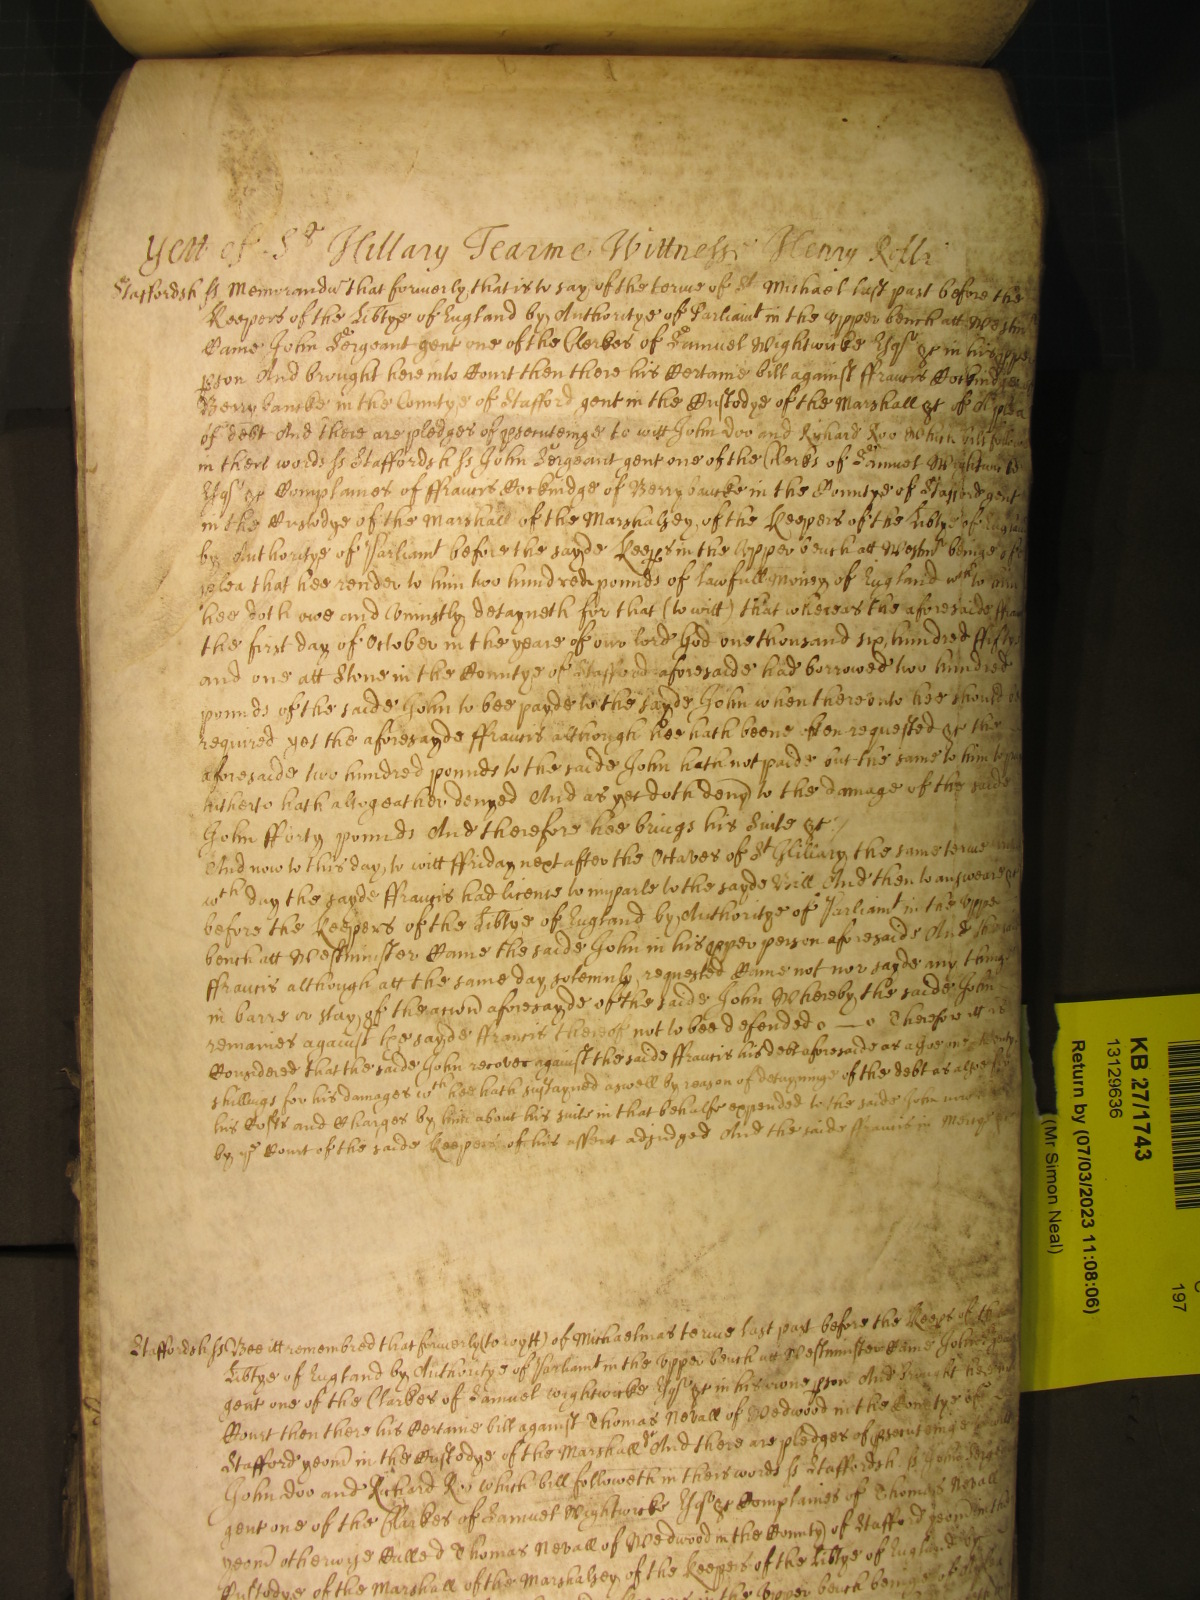 Yett of St Hillary Tearme Wittness Henry Rolle
Staffordsh ss Memorandu that formerly that is to say of the terme of St Michael last past before the
Keepers of the Libtye of England by Authoritye of Parliamt in the upper bench att Westmr
Came John Sergeant gent one of the Clerkes of Samuel Wightwicke Esqr &c in his
pson And brought here into Court then there his Certaine bill against ffrancis
Berry bancke in the Countye of Stafford gent in the Custodye of the Marshall &c of A plea
of debt And there are pledges of psecuteinge to witt John Doo and Richard Roo Which bill
in theis words ss Staffordsh ss John Sergeant gent one of the Clerks of Samuel Wightwicke
Esqr &c Complaines of ffrancis Cockridge of Berry bancke in the Countye of Stafford gent
in the Custodye of the Marshall of the Marshalsey of the Keepers of the Libtye of England
by Authoritye of Parliamt before the sayde Keeps in the Upper bench att Westmr beinge of a
plea that hee render to him two hundred pounds of lawfull Money of England wch to him
hee doth owe and Uniustly detayneth for that (to witt) that whereas the aforesaide
the first day of October in the yeare of our lord God one thousand six hundred
and one att Stone in the Countye of Stafford aforesaide had borrowed two hundred
pounds of the saide John to bee payde to the sayde John when thereunto hee should be
required yet the aforesayde ffrancis although hee hath beene often requested &c the
aforesaide two hundred pounds to the saide John hath not paide but the same to him to
hitherto hath altogeather denyed And as yet doth deny to the damage of the saide
John fforty pounds And therefore hee brings his Suite &c
And now to this day to witt ffriday next after the Octaves of St Hillary the same terme
wth day the sayde ffrancis had licence to imparle to the sayde Bill And then to answeare &c
before the Keepers of the Libtye of England by Authoritye of Parliamt in the upper
bench att Westminster Came the saide John in his pper person aforesaide And the
ffrancis although att the same day solemnly requested Came not nor sayde any thinge
in barre or stay of the accon aforesayde of the saide John Whereby the saide John
remaines against the sayde ffrancis thereof not to bee defended Therefore itt is
Considered that the saide John recover against the saide ffrancis his debt aforesaide as alsoe
shillings for his damages wch hee hath sustayned aswell by reason of detayninge of the debt as alsoe for
his Costs and Charges by him about his suite in that behalfe expended to the saide John
by ye Court of the saide Keepers of his assent adjudged And the saide ffrancis in Mercy &c
Staffordsh ss Bee itt remembred that formerly (to wytt) of Michaelmas terme last past before the Keeps of the
Libtye of England by Authoritye of Parliamt in the Upper bench att Westminster Came John
gent one of the Clarkes of Samuel Wightwicke Esqr &c in his owne pson And brought here
Court then there his Certaine bill against Thomas Nevall of Wedwood in the Countye of
Stafford yeom in the Custodye of the Marshall &c And there are pledges of psecuteinge
John Doo and Richard Roo Which bill followeth in theis words ss Staffordsh ss John
gent one of the Clarkes of Samuel Wightwicke Esqr &c Complaines of Thomas Nevall
yeom otherwise Called Thomas Nevall of Wedwood in the County of Stafford yeom in the
Custodye of the Marshall of the Marshalsey of the Keepers of the Libtye of England
the Upper bench beinge of a plea
KB 27/1743
13129636
Return by (07/03/2023 11:08:06)
(Mr Simon Neal)
197